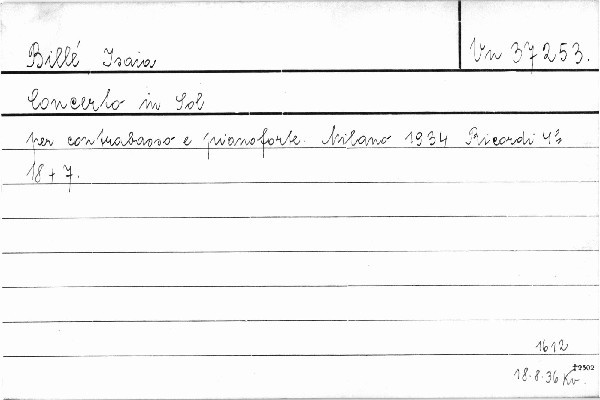 Billé Isaia Vn 37253.
Concerto in Sol
per contrabasso e pianoforte. Milano 1934 Ricordi 4°
18 + 7.
1612
18.8.36 Kv.